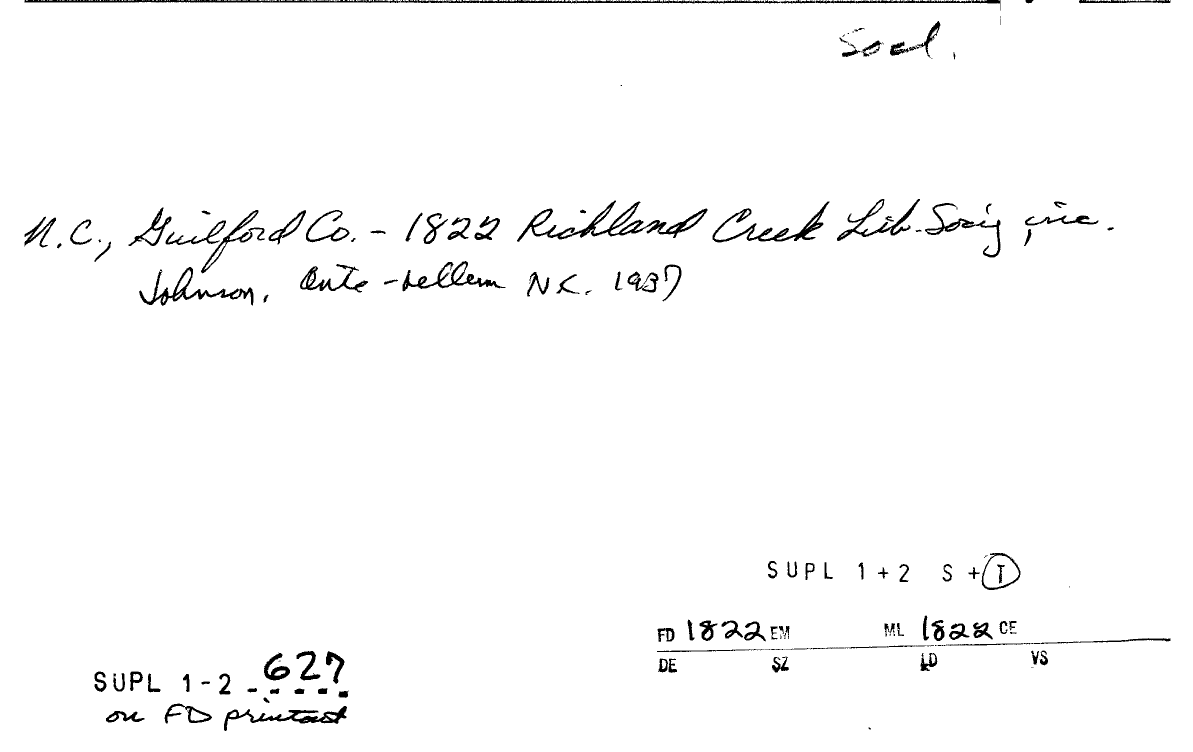 Socl.
N.C., Guilford Co. - 1822 Richland Creek Lib. Soc'y, inc.
Johnson. Ante-bellum N.C. 1937
SUPL 1+2 S+I
FD 1822 EM ML 1822 CE
DE SZ LD VS
SUPL 1-2 - 627
on FD printout